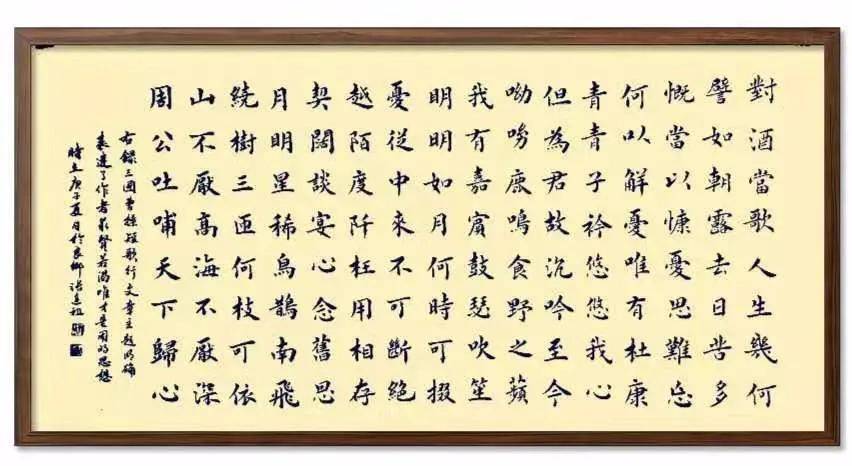 對酒當歌人生幾何
譬如朝露去日苦多
慨當以慷憂思難忘
何以解憂唯有杜康
青青子衿悠悠我心
但為君故沉吟至今
呦呦鹿鳴食野之蘋
我有嘉賓鼓瑟吹笙
明明如月何時可掇
憂從中來不可斷絕
越陌度阡枉用相存
契闊談宴心念舊恩
月明星稀烏鵲南飛
繞樹三匝何枝可依
山不厭高海不厭深
周公吐哺天下歸心
右錄三國曹操短歌行文章主題明確
表達了作者求賢若渴唯才是用的思想
庚子夏日於良鄉